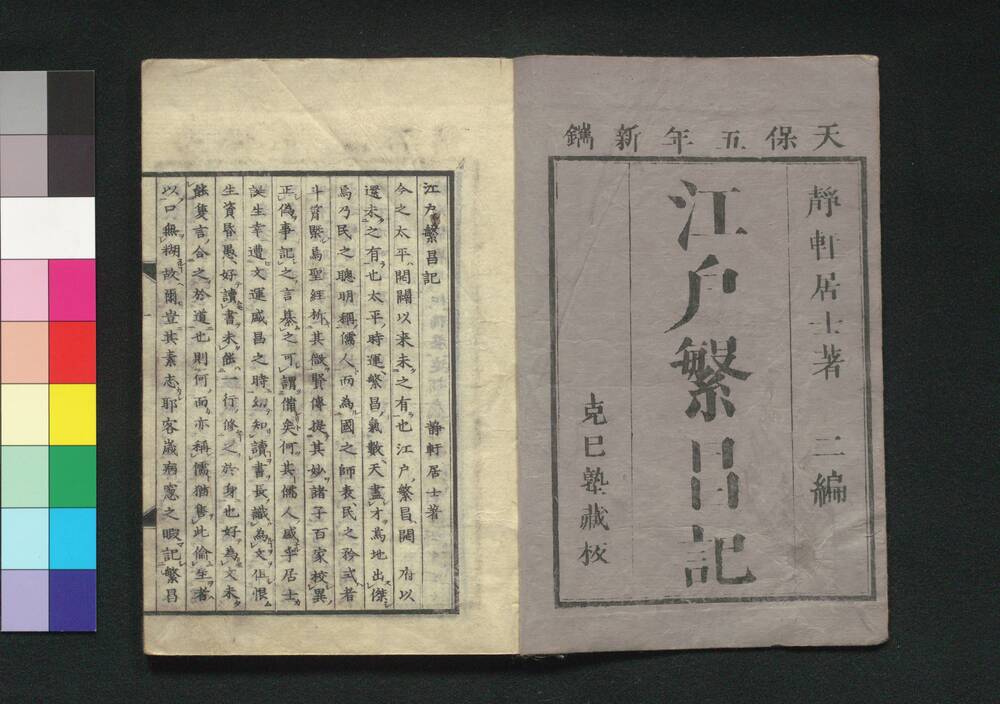 天保五年新鐫
靜軒居士著 二編
江戶繁昌記
克己塾藏板
江戶繁昌記
靜軒居士著
今之太平開闢以來未之有也江戶繁昌開 府以
還未之有也太平時運繁昌氣數天盡才爲地出傑
爲乃民之聰明稱儒人而為國之師表民之矜式者
斗筲緊爲聖經析其微賢傳提其妙諸子百家校異
正偽事記之言纂之可謂備矣何其儒人盛乎居士
誤生幸遭文運盛昌之時幼知讀書長識為文但恨
生資昏愚好讀書未能一行修之於身也好為文未
能隻言合之於道也則何而亦稱儒猶售此倫生者
以口無糊故爾豈其素志耶客歲病窓之暇記繁昌